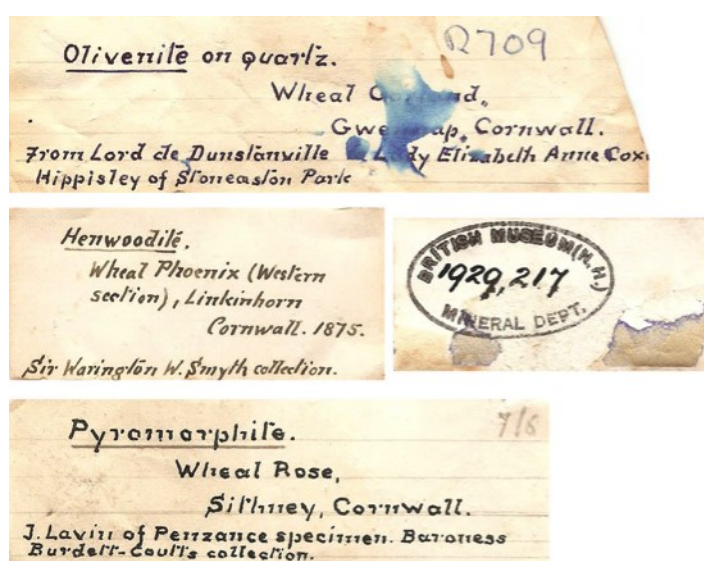 Olivenite on quartz.
R709
Wheal Gorland,
Gwennap, Cornwall.
From Lord de Dunstanville Lady Elizabeth Anne Cox
Hippisley of Stoneaston Park
Henwoodite.
Wheal Phoenix (Western
section), Linkinhorn
Cornwall. 1875.
Sir Warington W. Smyth collection.
BRITISH MUSEUM (N.H.)
1929,217
MINERAL DEPT.
Pyromorphite.
Wheal Rose,
Sithney, Cornwall.
J. Lavin of Penzance specimen. Baroness
Burdett-Coutts collection.